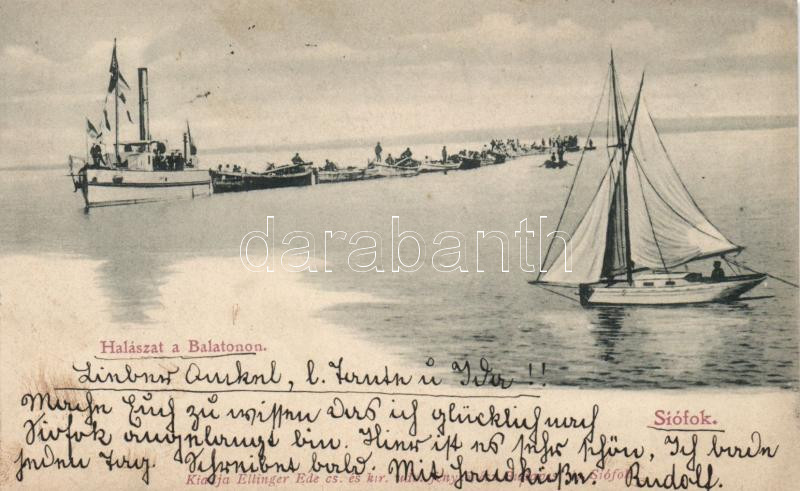 darabanth.com
Halászat a Balatonon.
Lieber Onkel, l. Tante u Ida !!
Mache Euch zu wissen das ich glücklich nach
Siófok.
Siofok angelangt bin. Hier ist es sehr schön, Ich bade
jeden Tag. Schreibet bald. Mit Handküße. Rudolf.
Kiadja Ellinger Ede cs. és kir. udv. fény Siófok